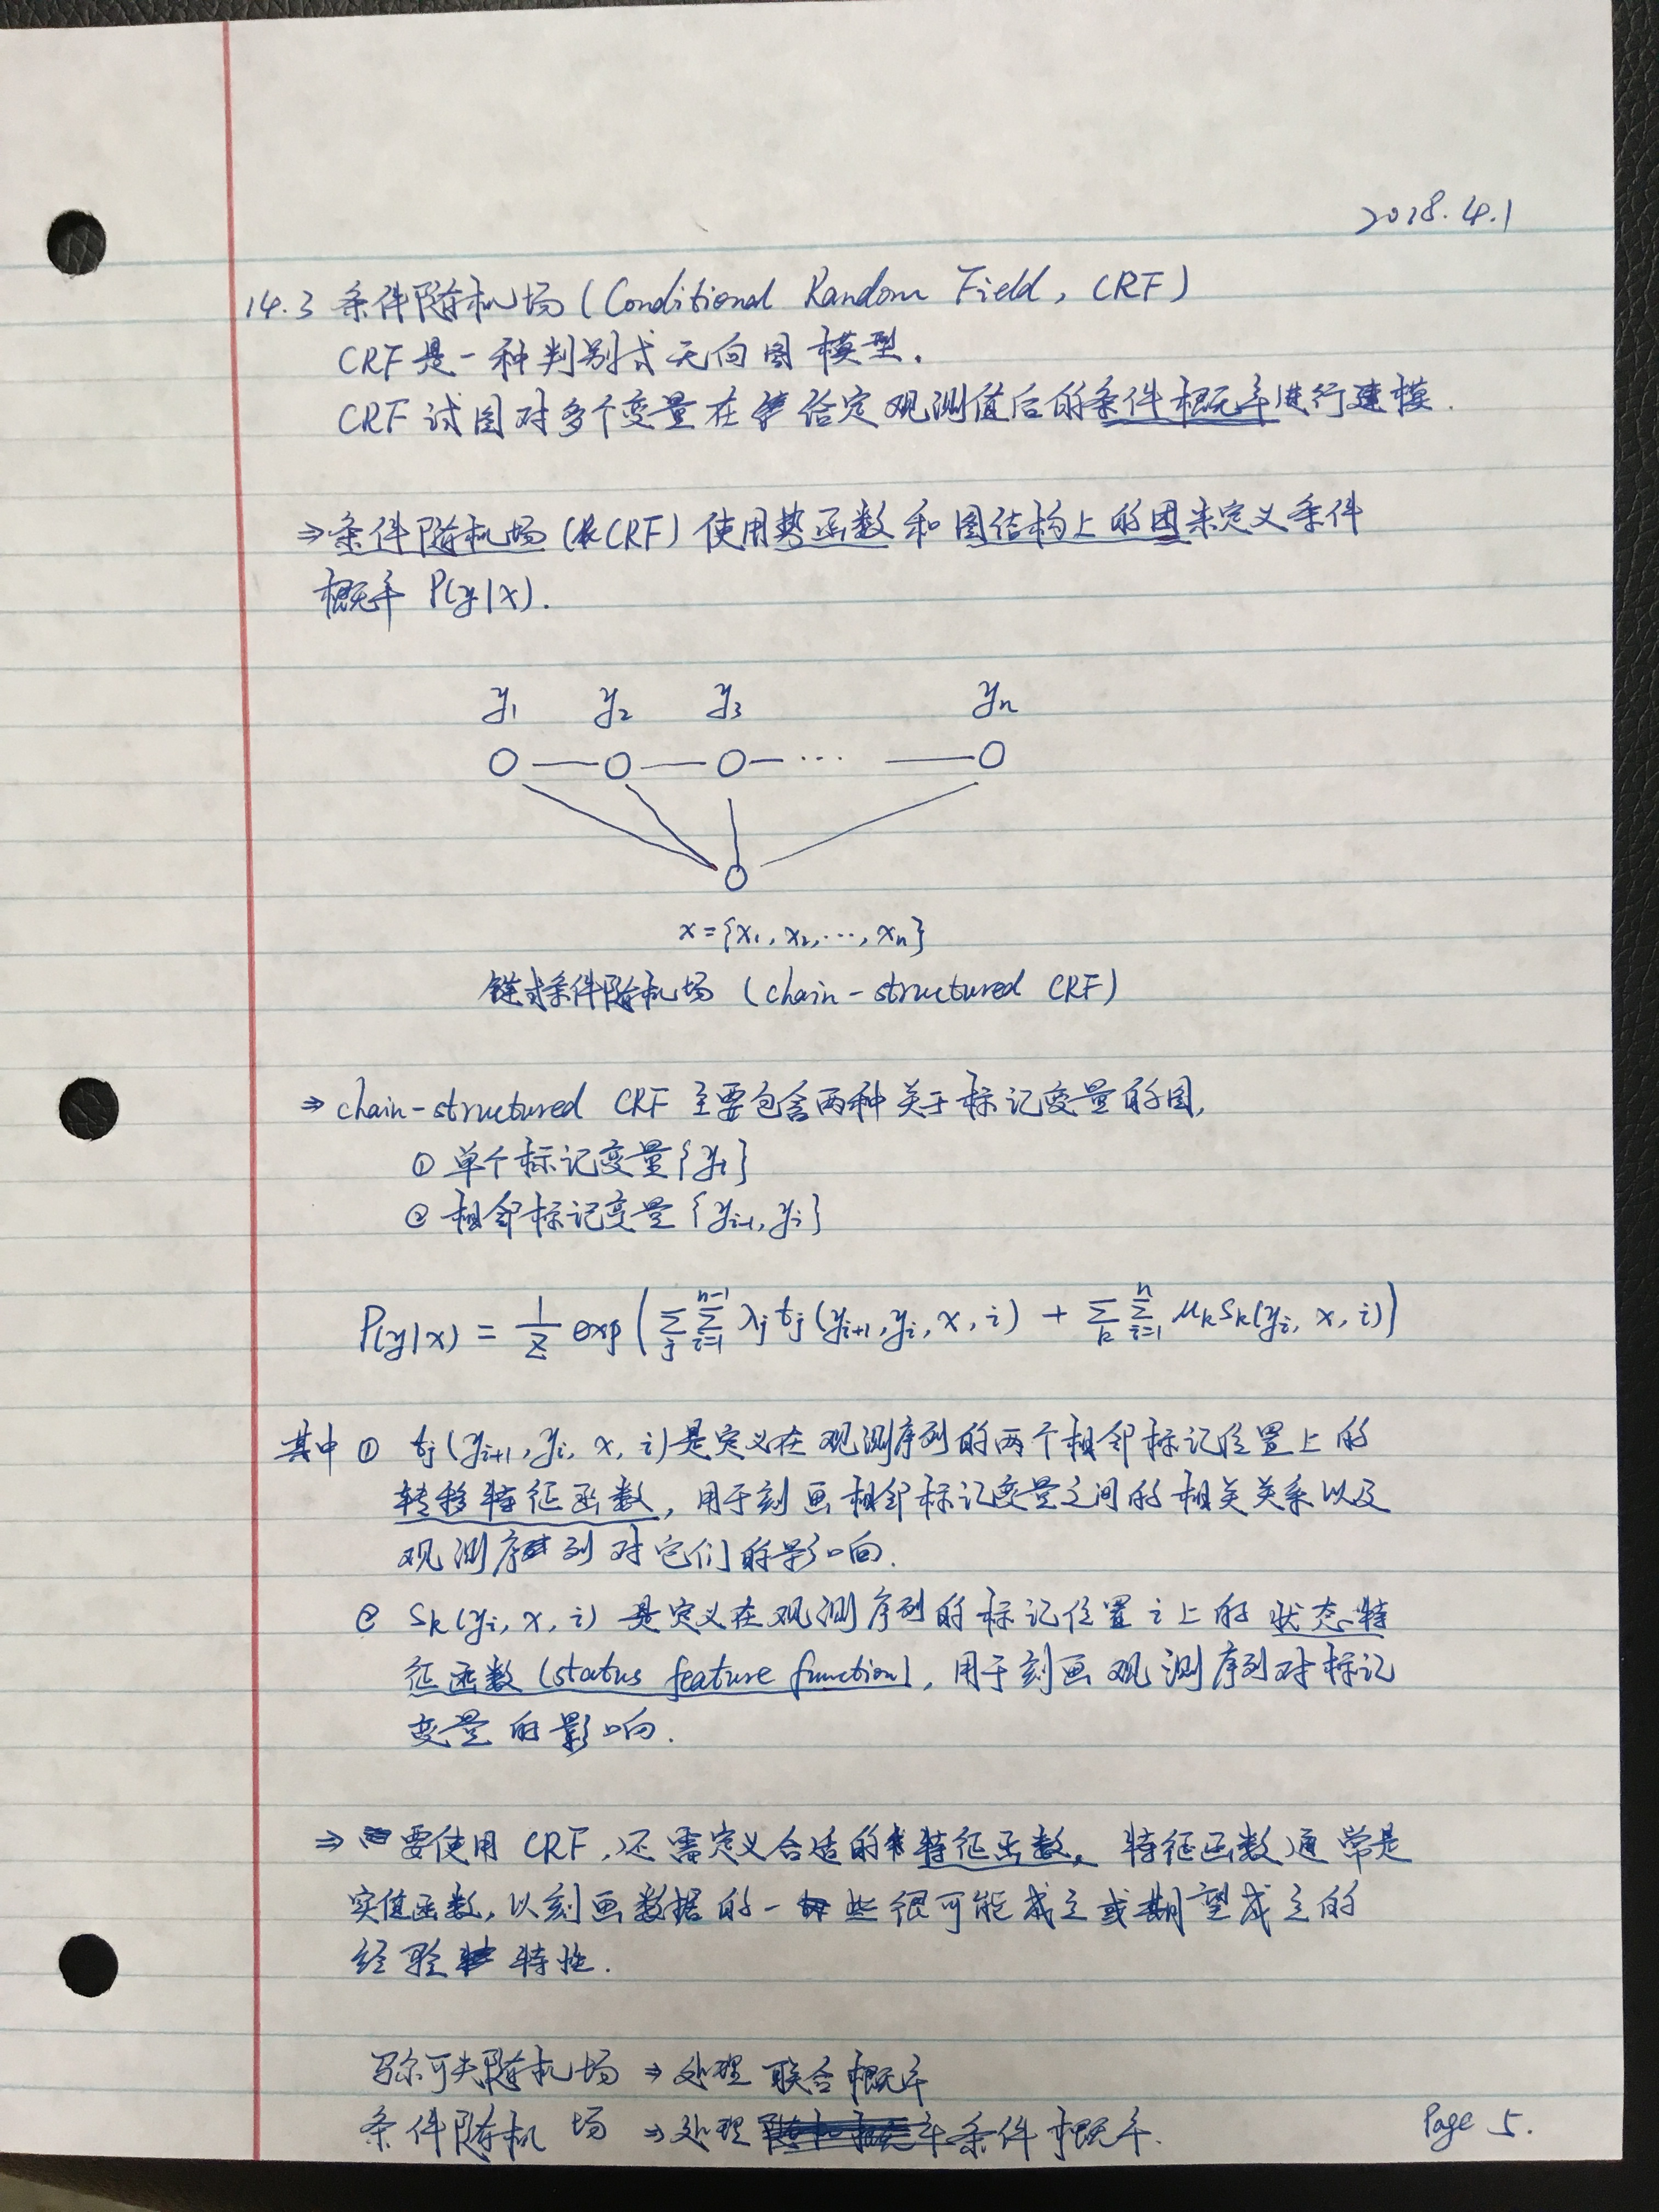 2018.4.1
14.3 条件随机场 (Conditional Random Field, CRF)
CRF是一种判别式无向图模型.
CRF试图对多个变量在给定观测值后的条件概率进行建模.
⇒条件随机场 (CRF) 使用势函数和图结构上的团来定义条件
概率 P(y|x).
y₁ y₂ y₃ yₙ
···
x={x₁, x₂, ···, xₙ}
链式条件随机场 (chain-structured CRF)
⇒ chain-structured CRF 主要包含两种关于标记变量的团,
① 单个标记变量{yᵢ}
② 相邻标记变量{yᵢ₋₁, yᵢ}
P(y|x) = 1/Z exp(∑ⱼ ∑ᵢ₌₁ⁿ⁻¹ λⱼ tⱼ(yᵢ₊₁, yᵢ, x, i) + ∑ₖ ∑ᵢ₌₁ⁿ μₖ sₖ(yᵢ, x, i))
其中 ① tⱼ(yᵢ₊₁, yᵢ, x, i)是定义在观测序列的两个相邻标记位置上的
转移特征函数, 用于刻画相邻标记变量之间的相关关系以及
观测序列对它们的影响.
② sₖ(yᵢ, x, i) 是定义在观测序列的标记位置 i 上的 状态特
征函数 (status feature function), 用于刻画观测序列对标记
变量的影响.
⇒ 要使用 CRF, 还需定义合适的特征函数. 特征函数通常是
实值函数, 以刻画数据的一些很可能成立或期望成立的
经验特性.
马尔可夫随机场 ⇒ 处理 联合概率
条件随机场 ⇒ 处理 条件概率.
Page 5.